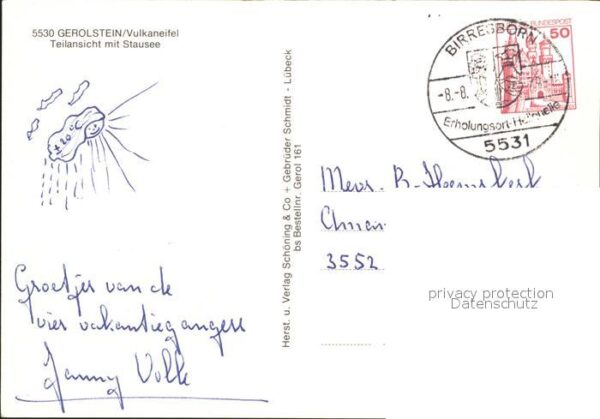 5530 GEROLSTEIN/Vulkaneifel
Teilansicht mit Stausee
± 20°
Groetjes van de
vier vakantiegangers
Janny Volle
Herst. u. Verlag Schöning & Co + Gebrüder Schmidt - Lübeck
bs Bestellnr. Gerol 161
BIRRESBORN
-8.-8.
Erholungsort-Heilquelle
5531
DEUTSCHE BUNDESPOST
50
Mevr. R. Heemskerk
3552
privacy protection
Datenschutz